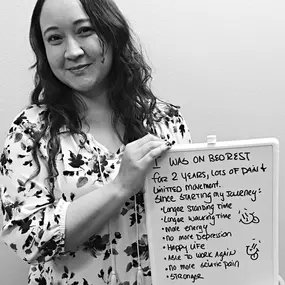 I WAS ON BEDREST
FOR 2 YEARS, LOTS OF PAIN &
LIMITED MOVEMENT.
SINCE STARTING MY JOURNEY:
• LONGER STANDING TIME
• LONGER WALKING TIME
• MORE ENERGY
• NO MORE DEPRESSION
• HAPPY LIFE
• ABLE TO WORK AGAIN
• NO MORE SCIATIC PAIN
• STRONGER